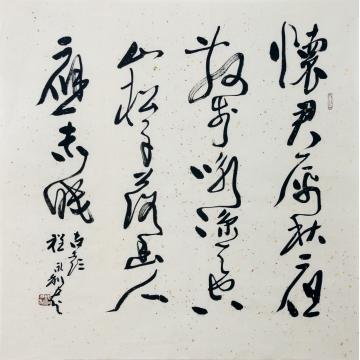 懷君屬秋夜
散步詠涼天空
山松子落幽人
應未眠
程永利